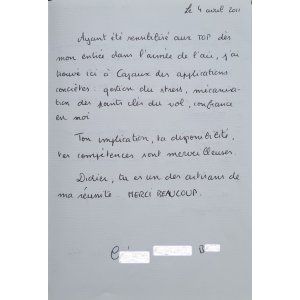 Le 4 avril 2011
Ayant été sensibilisé aux TOP dès
mon entrée dans l'armée de l'air, j'ai
trouvé ici à Cazaux des applications
concrètes : gestion du stress, mécanisa-
tion des points clés du vol, confiance
en moi
Ton implication, ta disponibilité,
tes compétences sont merveilleuses.
Didier, tu es un des artisans de
ma réussite. MERCI BEAUCOUP.